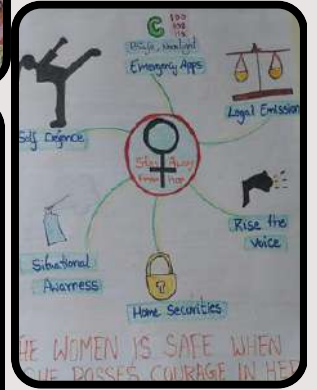 100
Bsafe, Noonlight
Emergency Apps
Legal Emission
Self Defence
Stay Away
From Her
Rise the
Voice
Situational
Awarness
Home Securities
HE WOMEN IS SAFE WHEN
POSSES COURAGE IN HER